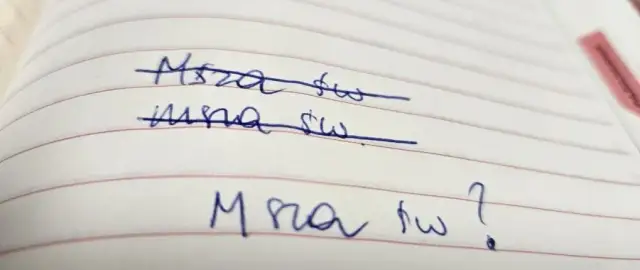 Msza św
msza św.
Msza św?